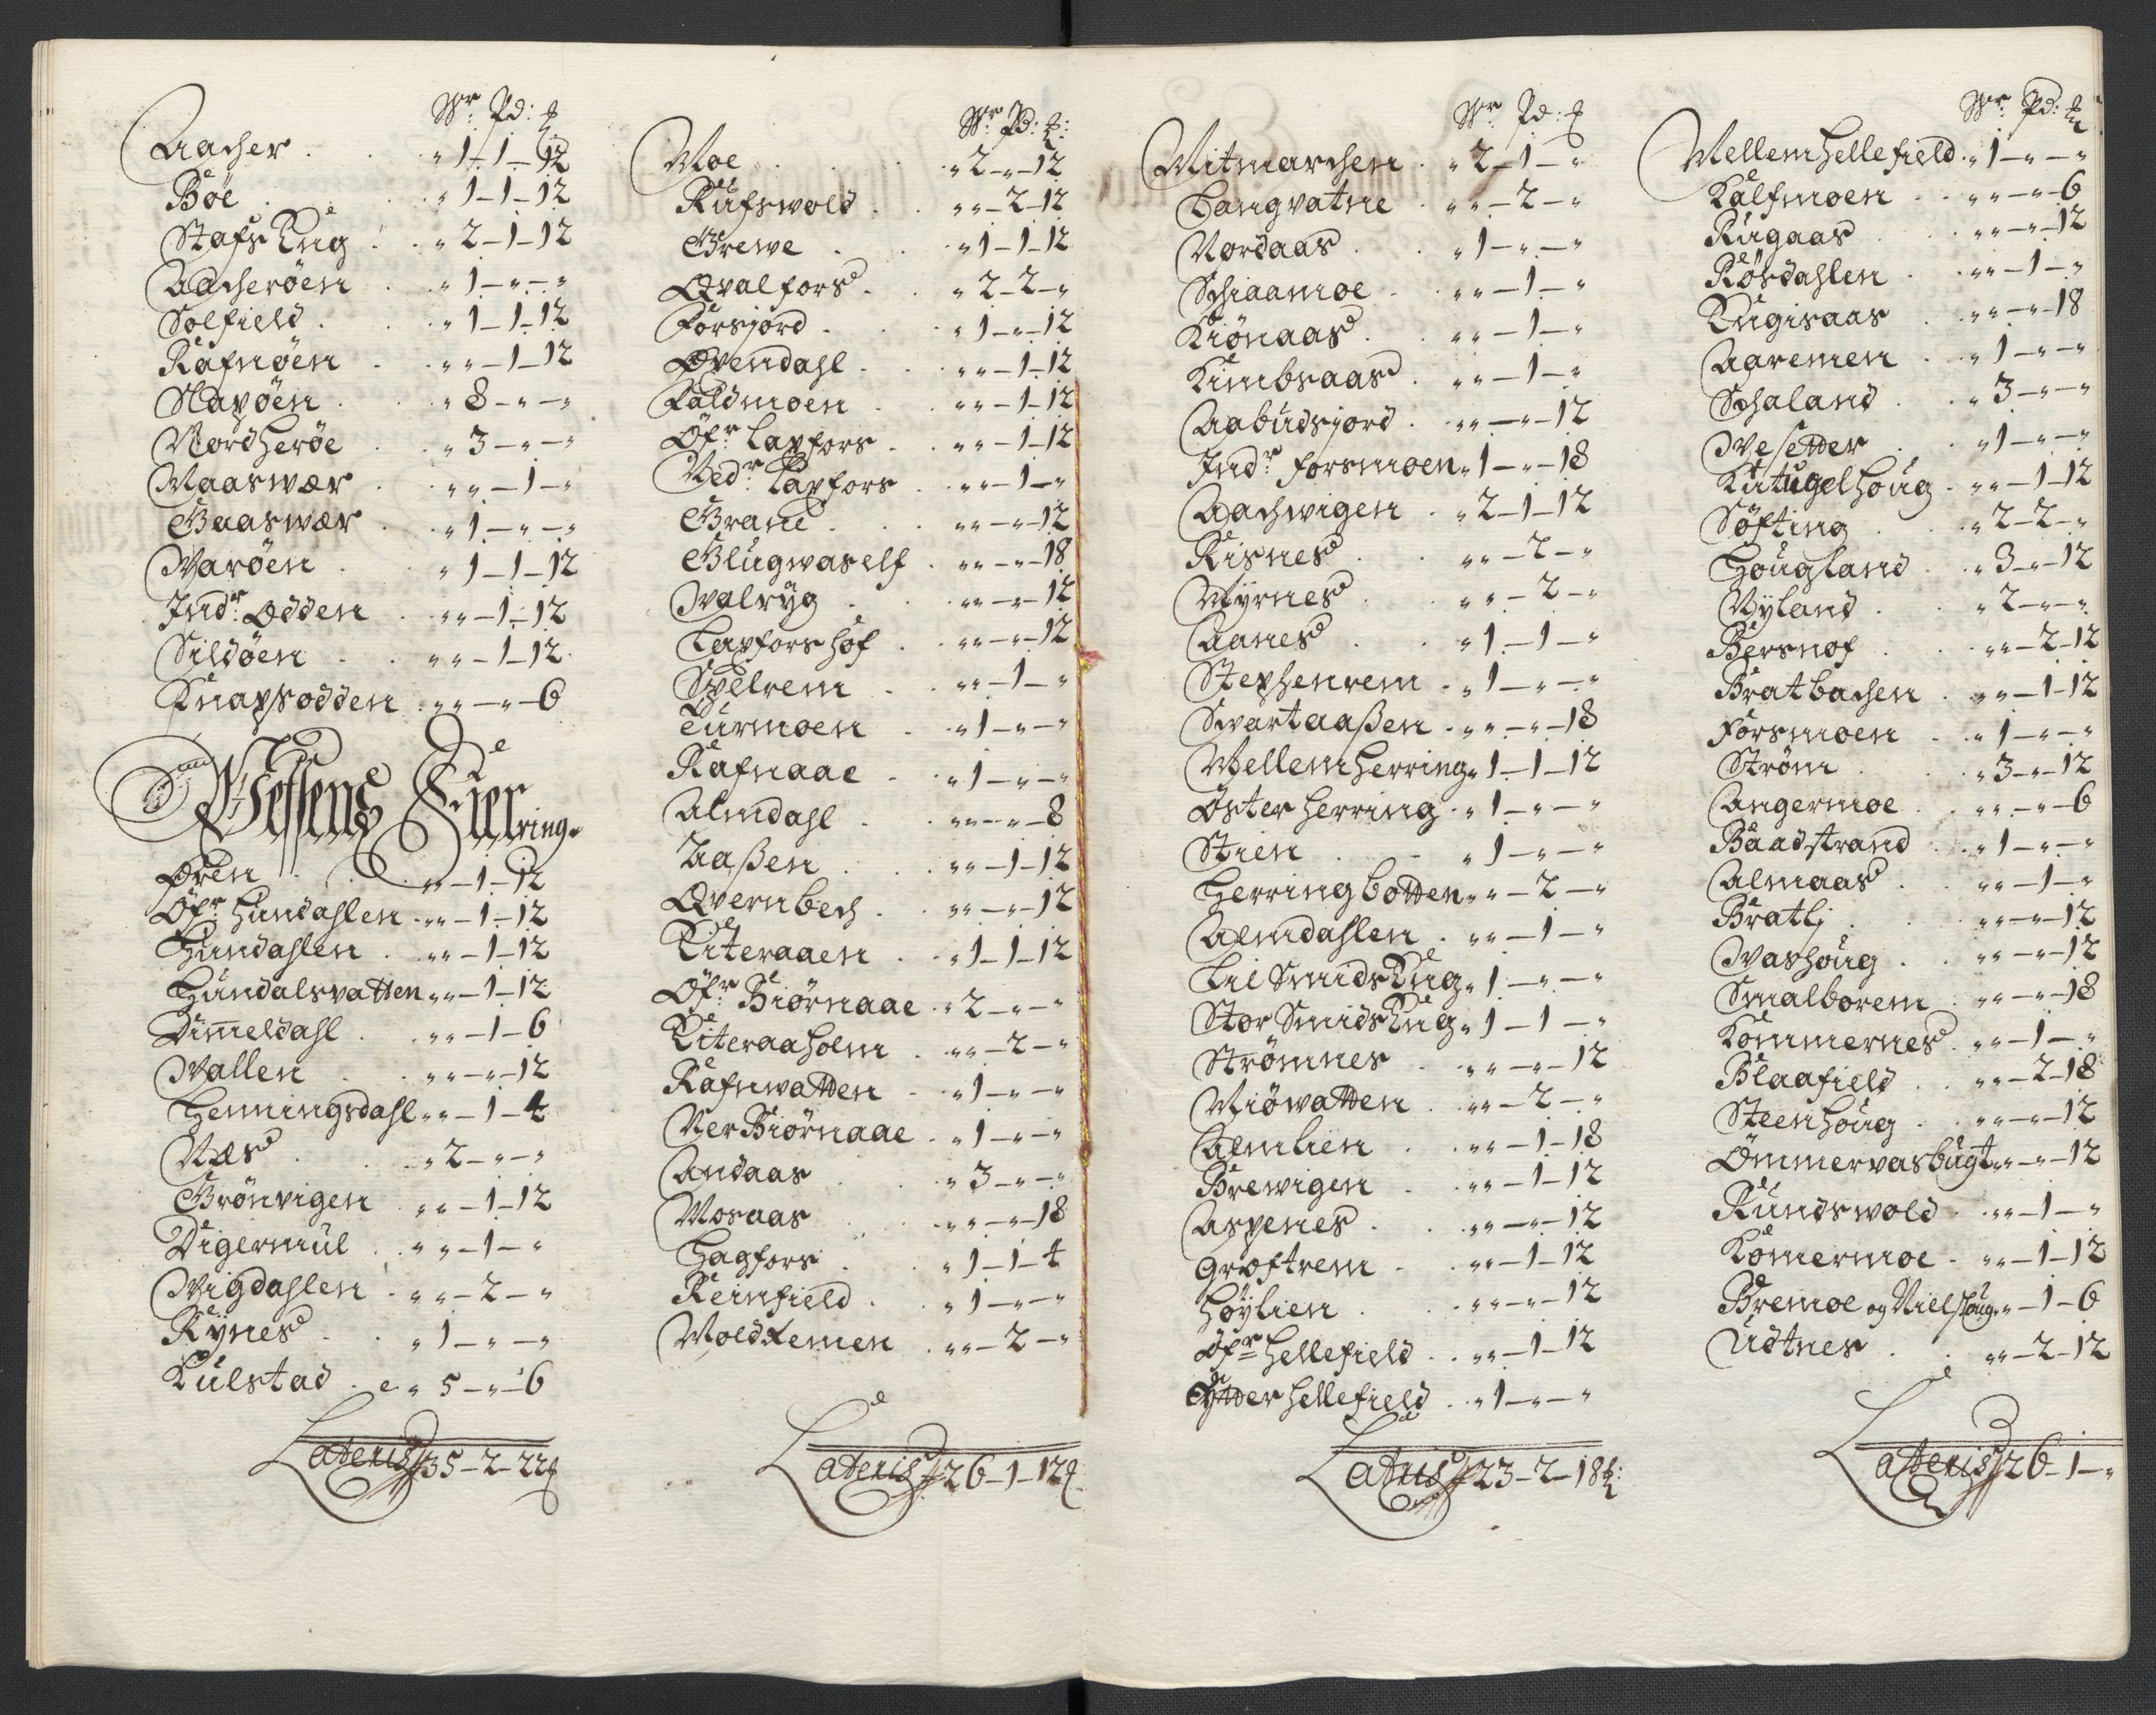 Wr Pd: ℔
Aacher . . „ 1 – 1 – 12
Böe . . „ 1 – 1 – 12
Stafs Eng . . „ 2 – 1 – 12
Aacheröen . „ 1 – „ – „
Solfield . . „ 1 – 1 – 12
Rafnöen . „ „ – 1 – 12
Slapöen . . „ 8 – „ – „
Nordheröe . „ 3 – „ – „
Maaswær . „ „ – 1 – „
Gaaswær . „ 1 – „ – „
Waröen . „ 1 – 1 – 12
Indr: Odden . „ „ – 1 – 12
Sildöen . . „ „ – 1 – 12
Knapsodden . „ „ – „ – 6
Wefsens Fier ring.
Øren . . „ „ – 1 – 12
Öfr: Hundahlen . „ „ – 1 – 12
Hundahlen . „ „ – 1 – 12
Hundalsvatten „ „ – 1 – 12
Dimeldahl . . „ „ – 1 – 6
Wallen . . „ „ – „ – 12
Henningsdahl „ „ – 1 – 4
Næs . . „ 2 – „ – „
Grönvigen . „ „ – 1 – 12
Digermul . „ „ – 1 – „
Wigdahlen . „ „ – 2 – „
Rÿnes . . „ 1 – „ – „
Kulstad . „ 5 – „ – 6
Lateris 35 – 2 – 22 ℔
Wr: Pd: ℔:
Moe . . „ 2 – „ – 12
Rufswold . „ „ – 2 – 12
Grewe . „ 1 – 1 – 12
Qvalfors . „ 2 – 2 – „
Forsjord . . „ 1 – „ – 12
Øvendahl . . „ „ – 1 – 12
Faldmoen . „ „ – 1 – 12
Öfr: Lapfors . „ „ – 1 – 12
Nedr: Lapfors . „ „ – 1 – „
Grane . . „ „ – „ – 12
Glugwaself . „ „ – „ – 18
Walrÿg . . „ „ – „ – 12
Lapfors hof . „ „ – „ – 12
Spelrem . „ „ – 1 – „
Turmoen . „ 1 – „ – „
Rafnaae . „ 1 – „ – „
Almdahl . . „ „ – „ – 8
Aaßen . . „ „ – 1 – 12
Qvernbech . „ „ – „ – 12
Eiteraaen . „ 1 – 1 – 12
Öfr: Biörnaae . „ 2 – „ – „
Eiteraaholm . „ „ – 2 – „
Rafnwatten . „ 1 – „ – „
Ner Biörnaae . „ 1 – „ – „
Andaas . . „ 3 – „ – „
Mosaas . . „ „ – „ – 18
Hagfors . . „ 1 – 1 – 4
Reinfield . . „ 1 – „ – „
Woldremen . „ „ – 2 – „
Lateris 26 – 1 – 12 ℔
Wr Pd: ℔
Mitmarchen . „ 2 – 1 – „
Langvatne . „ „ – 2 – „
Nordaas . . „ 1 – „ – „
Schiaamoe . „ „ – 1 – „
Kiönaas . . „ „ – 1 – „
Kimbsaas . „ „ – 1 – „
Aabudsjord . „ „ – „ – 12
Indr: forsmoen „ 1 – „ – 18
Aachwigen . „ 2 – 1 – 12
Risnes . . „ „ – 2 – „
Mÿrnes . . „ „ – 2 – „
Aanes . . „ 1 – 1 – „
Stephenrem . „ 1 – „ – „
Swartaaßen . „ „ – „ – 18
Mellemherring „ 1 – 1 – 12
Öster herring . „ 1 – „ – „
Stien . . „ 1 – „ – „
Herringbotten „ „ – 2 – „
Almdahlen . „ „ – 1 – „
Lil Smids Eng „ 1 – „ – „
Stor Smids Eng „ 1 – 1 – „
Strömnes . „ „ – „ – 12
Miöwatten . „ „ – 2 – „
Almlien . . „ „ – 1 – 18
Brewigen . . „ „ – 1 – 12
Aspenes . . „ „ – „ – 12
Groftrem . . „ „ – 1 – 12
Höÿlien . . „ „ – „ – 12
Öfr: hellefield . . „ „ – 1 – 12
Ÿtter hellefield . „ 1 – „ – „
Latus 23 – 2 – 18 ℔:
Wr: Pd: ℔
Mellemhellefield . „ 1 – „ – „
Kalfmoen . . „ „ – „ – 6
Rugaas . . „ „ – „ – 12
Rösdahlen . „ „ – 1 – „
Engisaas . „ „ – „ – 18
Aaremen . „ 1 – „ – „
Schaland . „ 3 – „ – „
Wesetter . „ 1 – „ – „
Kutugelhoug . „ „ – 1 – 12
Söfting . . „ 2 – 2 – „
Hougland . „ 3 – „ – 12
Nÿland . . „ 2 – „ – „
Bersnof . . „ „ – 2 – 12
Bratbachen . „ „ – 1 – 12
Forsmoen . „ 1 – „ – „
Ström . . „ 3 – „ – 12
Angermoe . „ „ – „ – 6
Baadstrand . „ 1 – „ – „
Almaas . . „ „ – 1 – „
Bratlj . . „ „ – „ – 12
Washoug . . „ „ – „ – 12
Smalborem . „ „ – „ – 18
Kommernes . „ „ – 1 – „
Blaafield . . „ „ – 2 – 18
Steenhoug . „ „ – „ – 12
Ömmervasbugt „ „ – „ – 12
Rundswold . „ „ – 1 – „
Komermoe . „ „ – 1 – 12
Bremoe og Nielshoug „ „ – 1 – 6
Udtnes . . „ „ – 2 – 12
Lateris 26 – 1 – „